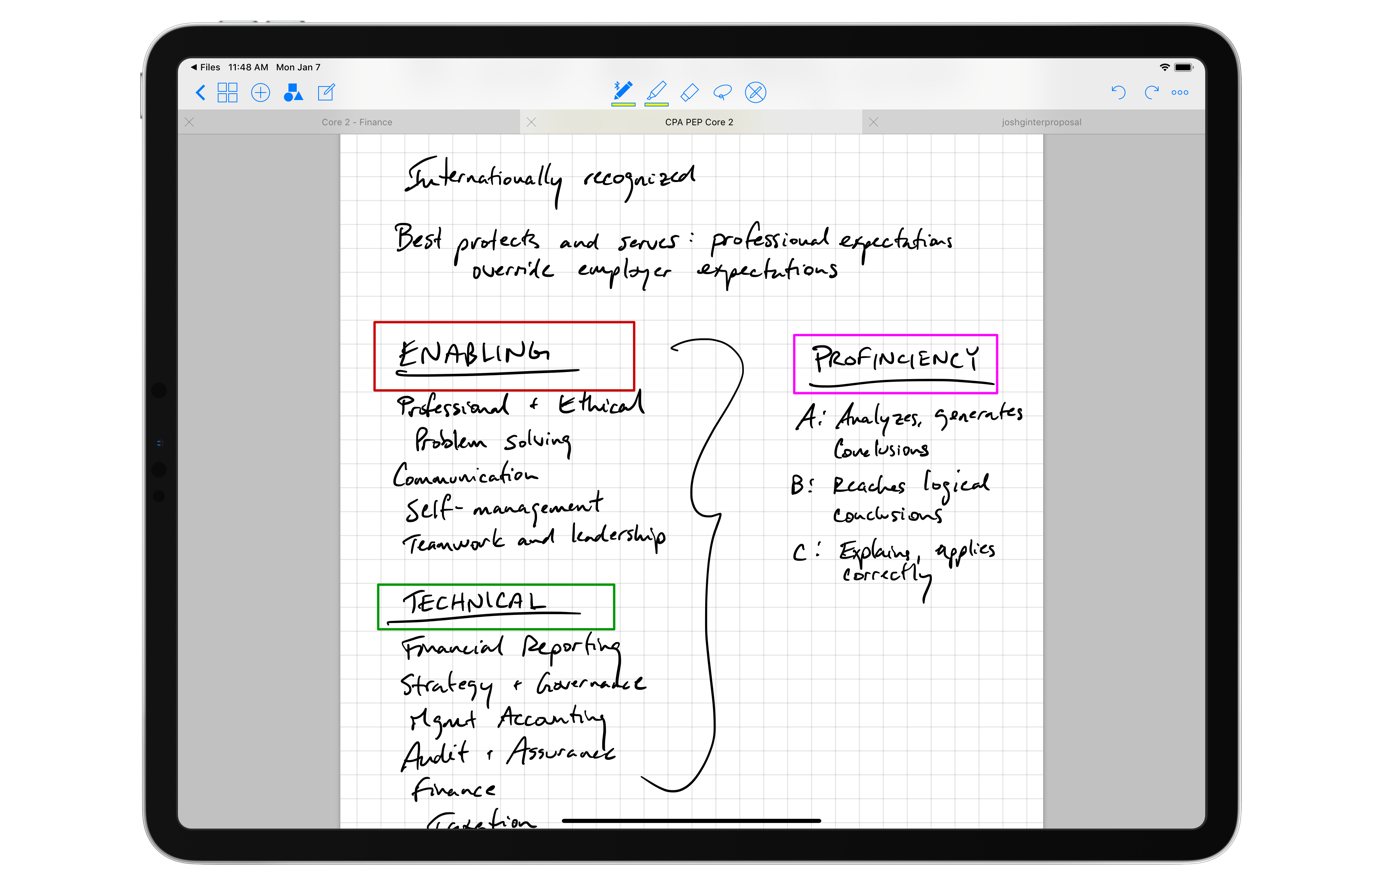 Files 11:48 AM Mon Jan 7
Core 2 - Finance
CPA PEP Core 2
joshginterproposal
Internationally recognized
Best protects and serves: professional expectations
override employer expectations
ENABLING
Professional + Ethical
Problem solving
Communication
Self-management
Teamwork and leadership
TECHNICAL
Financial Reporting
Strategy + Governance
Mgmt Accounting
Audit + Assurance
Finance
Taxation
PROFINCIENCY
A: Analyzes, generates
conclusions
B: Reaches logical
conclusions
C: Explains, applies
correctly